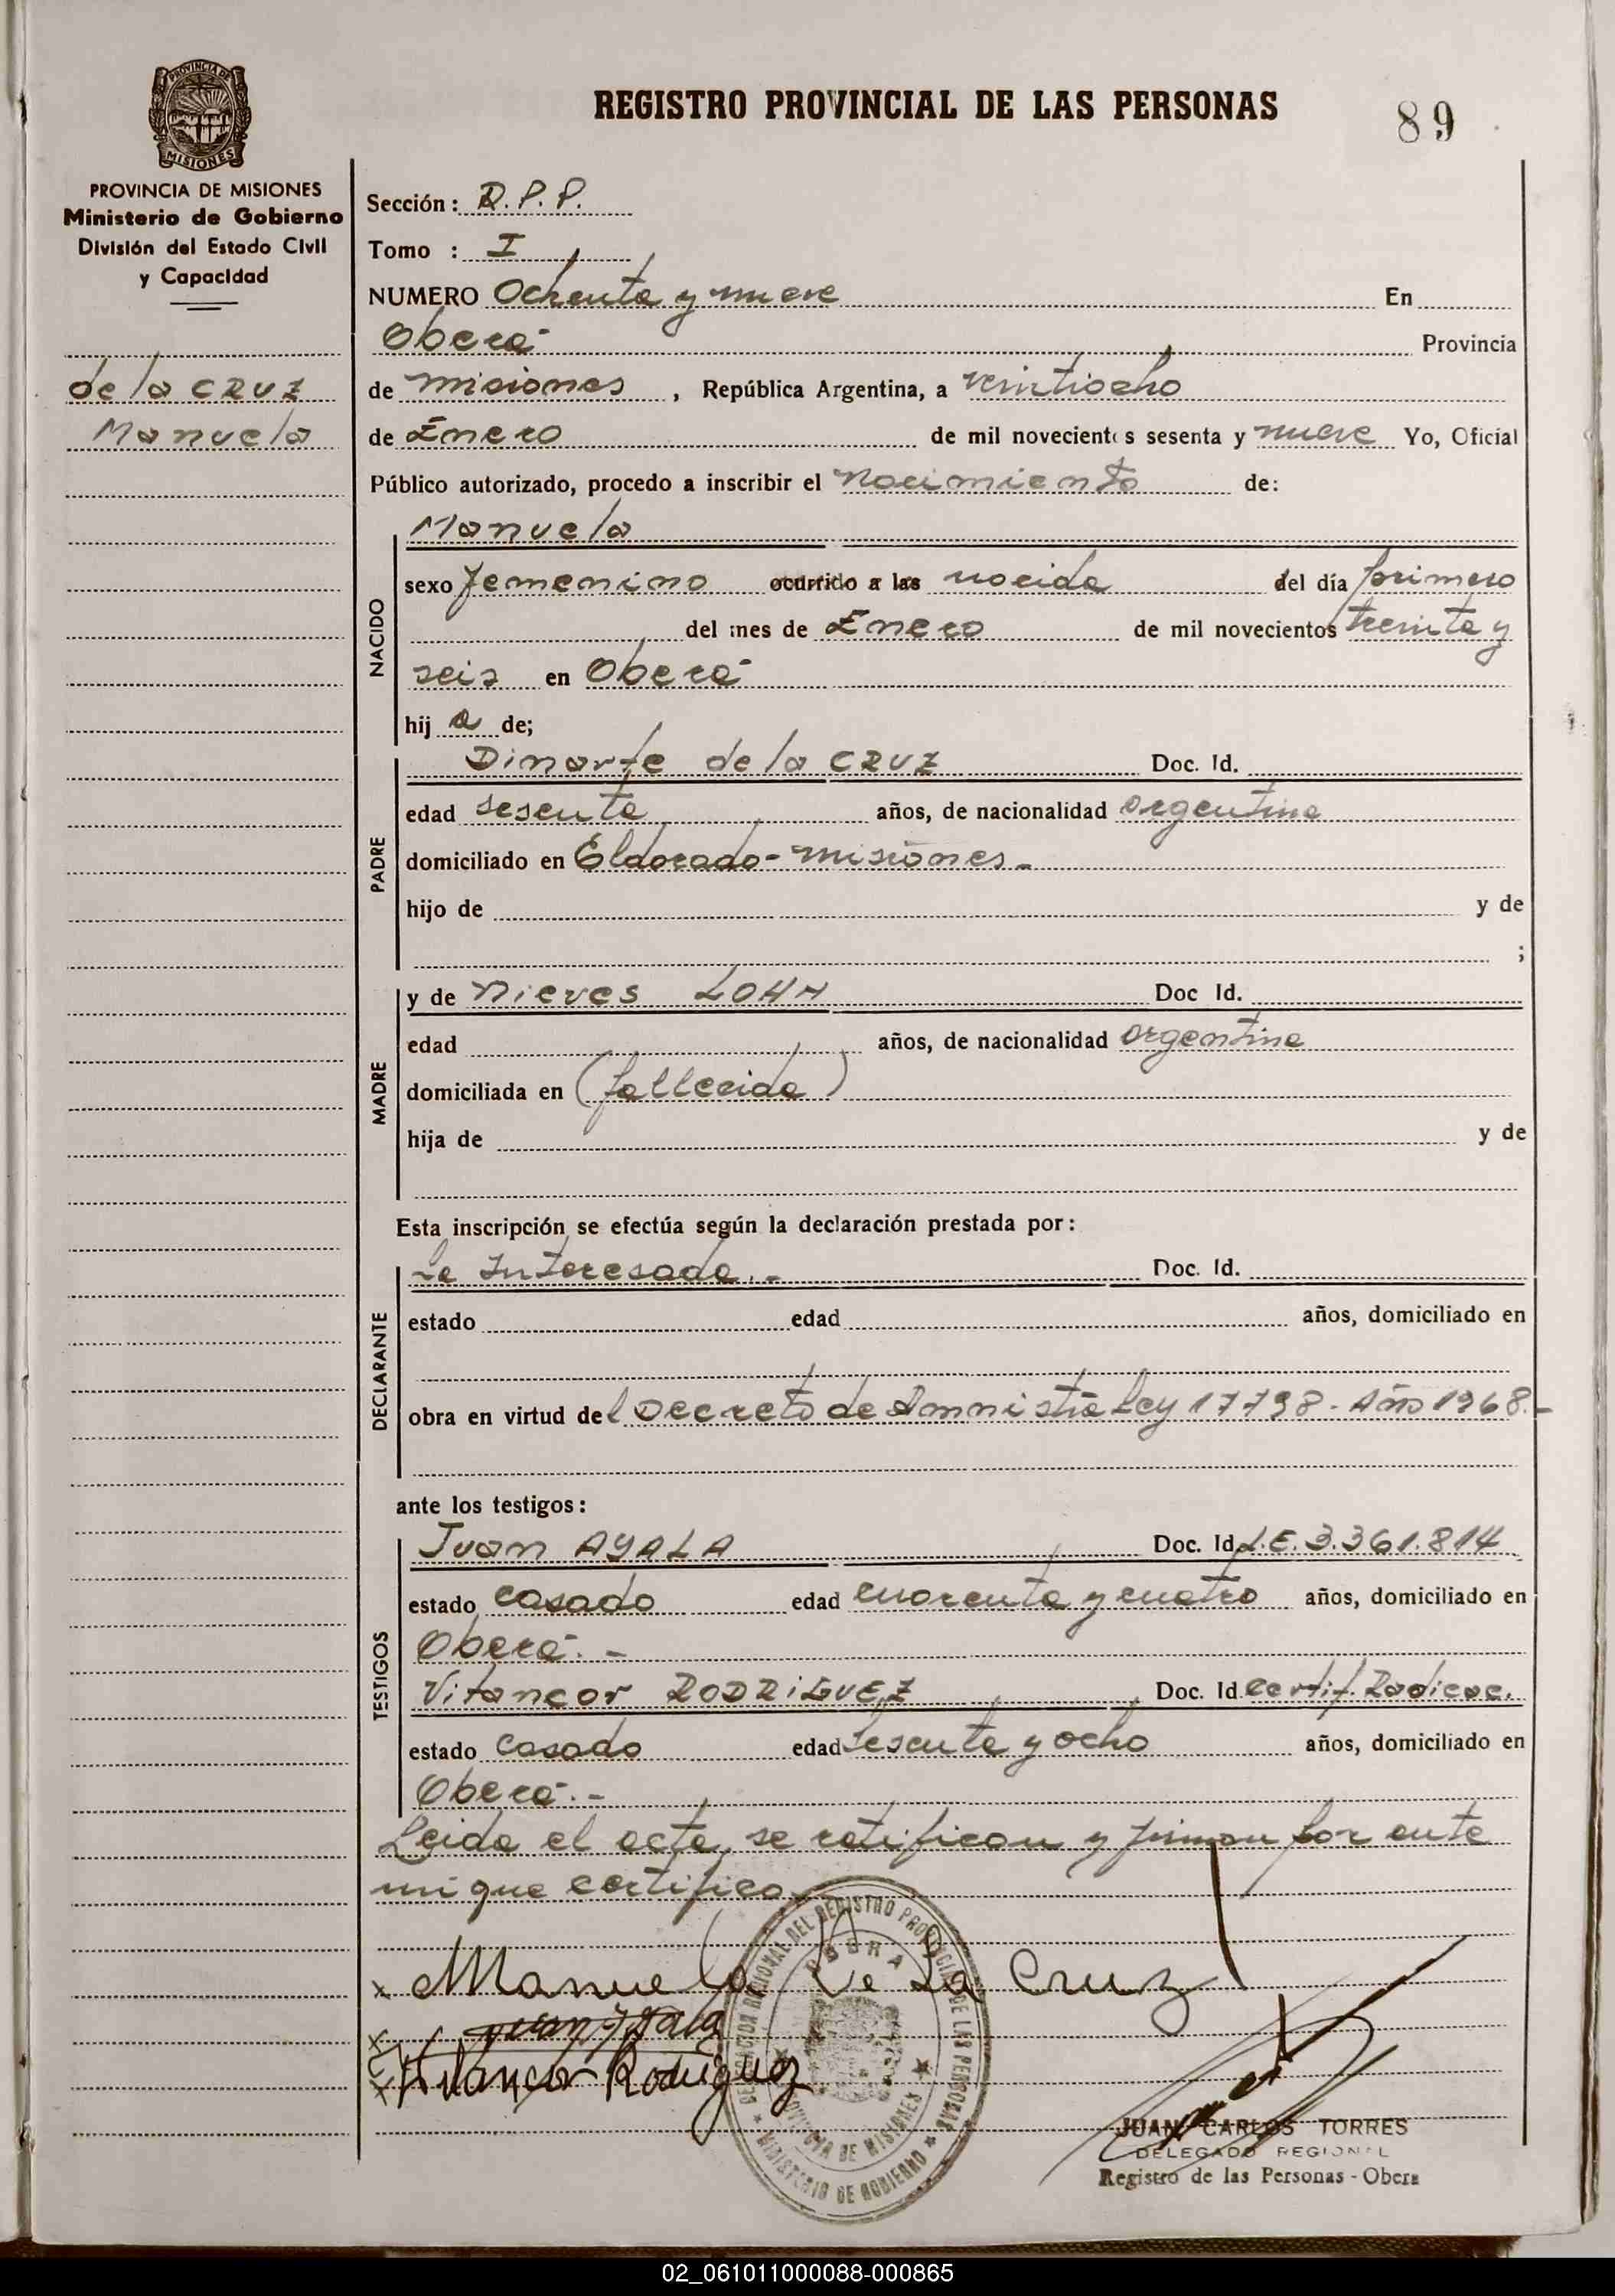 PROVINCIA DE
MISIONES
PROVINCIA DE MISIONES
Ministerio de Gobierno
División del Estado Civil
y Capacidad
de la CRUZ
Manuela
REGISTRO PROVINCIAL DE LAS PERSONAS
89
Sección: D.P.P.
Tomo : I
NUMERO Ochenta y nueve En
Oberá Provincia
de Misiones, República Argentina, a veintiocho
de Enero de mil novecientos sesenta y nueve Yo, Oficial
Público autorizado, procedo a inscribir el nacimiento de:
NACIDO
Manuela
sexo femenino ocurrido a las nacida del día primero
del mes de Enero de mil novecientos treinta y
seis en Oberá
hij a de;
PADRE
Dinarte de la CRUZ Doc. Id.
edad sesenta años, de nacionalidad argentina
domiciliado en Eldorado - Misiones -
hijo de y de
;
MADRE
y de Nieves LOHN Doc Id.
edad años, de nacionalidad argentina
domiciliada en (fallecida)
hija de y de
Esta inscripción se efectúa según la declaración prestada por:
DECLARANTE
La Interesada.- Doc. Id.
estado edad años, domiciliado en
obra en virtud del Decreto de Amnistía Ley 17798 - Año 1968.-
ante los testigos:
TESTIGOS
Juan AYALA Doc. Id. L.E. 3.361.814
estado casado edad cuarenta y cuatro años, domiciliado en
Oberá.-
Vitancor RODRIGUEZ Doc. Id. Certif. Radicac.
estado casado edad sesenta y ocho años, domiciliado en
Oberá.-
Leida el acta, se ratifican y firman por ante
mi que certifico
x Manuela De La Cruz
x Juan Ayala
x Vitancor Rodriguez
DELEGACION REGIONAL DEL REGISTRO PROVINCIAL DE LAS PERSONAS
OBERA
PROVINCIA DE MISIONES
MINISTERIO DE GOBIERNO
JUAN CARLOS TORRES
DELEGADO REGIONAL
Registro de las Personas - Obera
02_061011000088-000865